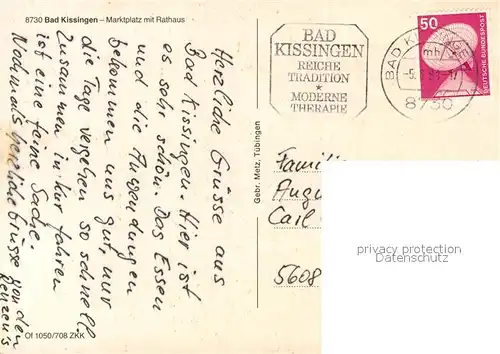 8730 Bad Kissingen – Marktplatz mit Rathaus
Herzliche Grüsse aus
Bad Kissingen. Hier ist
es sehr schön. Das Essen
und die Anwendungen
bekommen uns gut, nur
die Tage vergehen so schnell
Zusammen in Kur fahren
ist eine feine Sache.
Nochmals herzliche Grüsse von den
Of 1050/708 ZKK
Gebr. Metz, Tübingen
BAD
KISSINGEN
REICHE
TRADITION
★
MODERNE
THERAPIE
BAD KISSINGEN
mh
8730
50
DEUTSCHE BUNDESPOST
Famili
Augu
Carl
5608
privacy protection
veldr.com